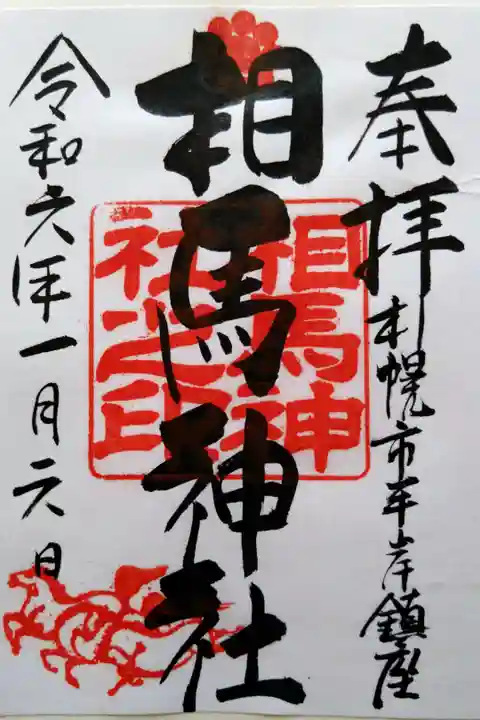 奉拝
札幌市平岸鎮座
相馬神社
相馬神
社之印
令和六年一月六日